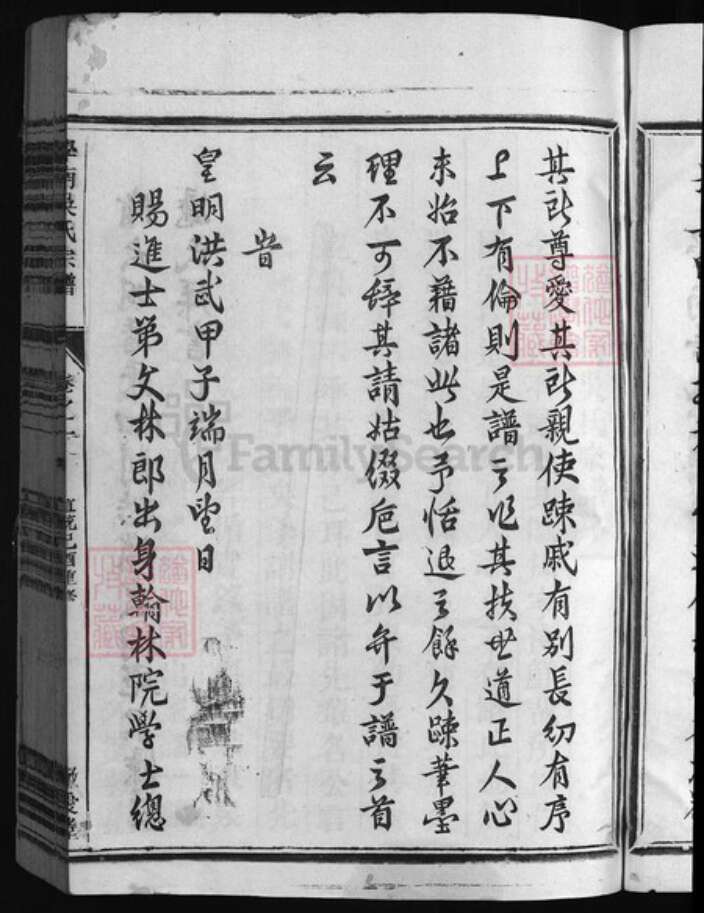 其所尊愛其所親使疎戚有別長幼有序
上下有倫則是譜之作其扶世道正人心
未始不藉諸此也予恬退之餘久疎華墨
理不可辭其請姑綴卮言以弁于譜之首
云
旹
皇明洪武甲子端月望日
賜進士第文林郎出身翰林院學士總
吳氏宗譜
卷之一
宣統己酉重修
FamilySearch